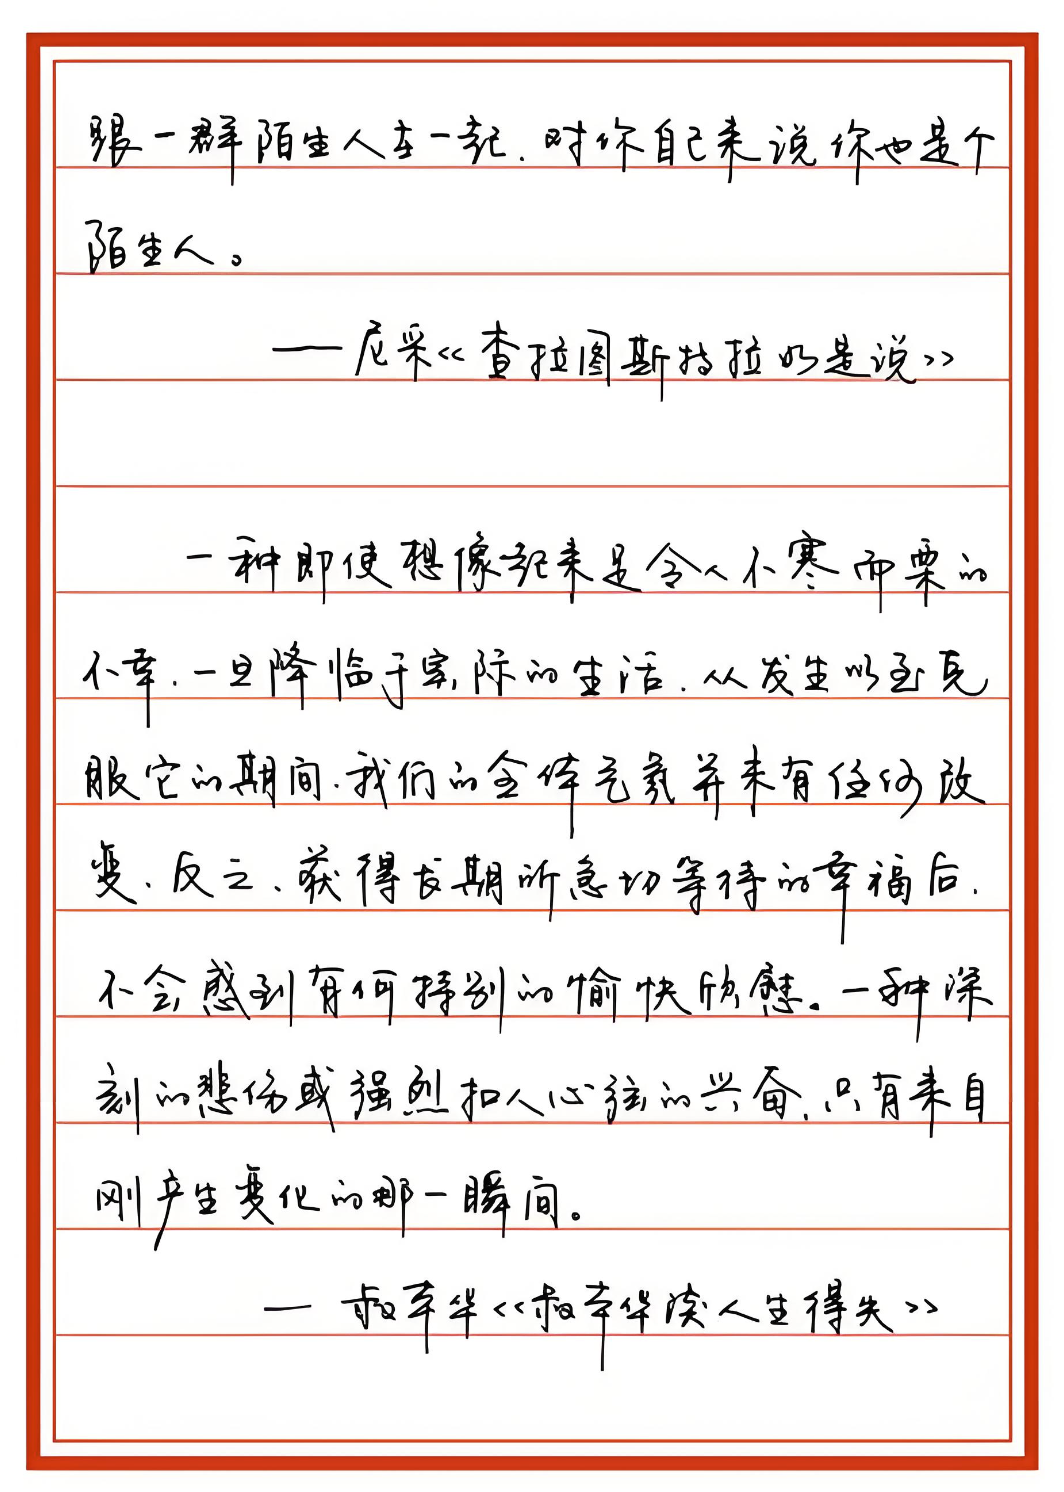 跟一群陌生人在一起,对你自己来说你也是个
陌生人。
——尼采《查拉图斯特拉如是说》
一种即使想像起来足令人不寒而栗的
不幸,一旦降临于实际的生活,从发生以至克
服它的期间,我们的全体气氛并未有任何改
变,反之,获得长期所急切等待的幸福后,
不会感到有何特别的愉快欣慰。一种深
刻的悲伤或强烈扣人心弦的兴奋,只有来自
刚产生变化的那一瞬间。
—叔本华《叔本华谈人生得失》